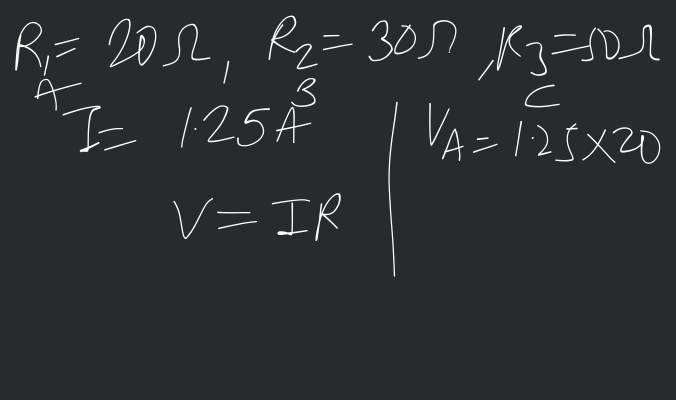 R₁ = 20Ω, R₂ = 30Ω, R₃ = 50Ω
A B C
I = 1.25A
V = IR
V_A = 1.25×20